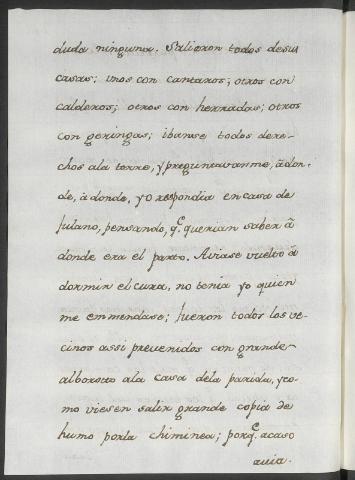 duda ninguna. Salieron todos desus
casas; unos con cantaros; otros con
calderos; otros con herradas; otros
con geringas; ibanse todos dere-
chos ala torre, y preguntavanme, àdon-
de, à donde, yo respondia encasa de
fulano, pensando, q.e querian saber à
donde era el parto. Aviase vuelto à
dormir el cura, no tenia yo quien
me emmendase; fueron todos los ve-
cinos assi prevenidos con grande
alboroto ala casa dela parida, yco-
mo viesen salir grande copia de
humo porla chiminea; porq.e acaso
avia.